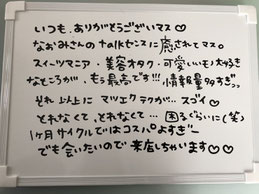 いつも、ありがとうございマス♡
なおみさんのtalkセンスに癒されてマス。
スイーツマニア・美容オタク・可愛いいもの大好き
なところが、もう最高です!!!情報量多すぎっ
それ以上に マツエクテクが… スゴイ♡
とれなくて、とれなくて… 困るぐらいに(笑)
1ヶ月サイクルではコスパ。よすぎ
でも会いたいので来店しちゃいます♡♡